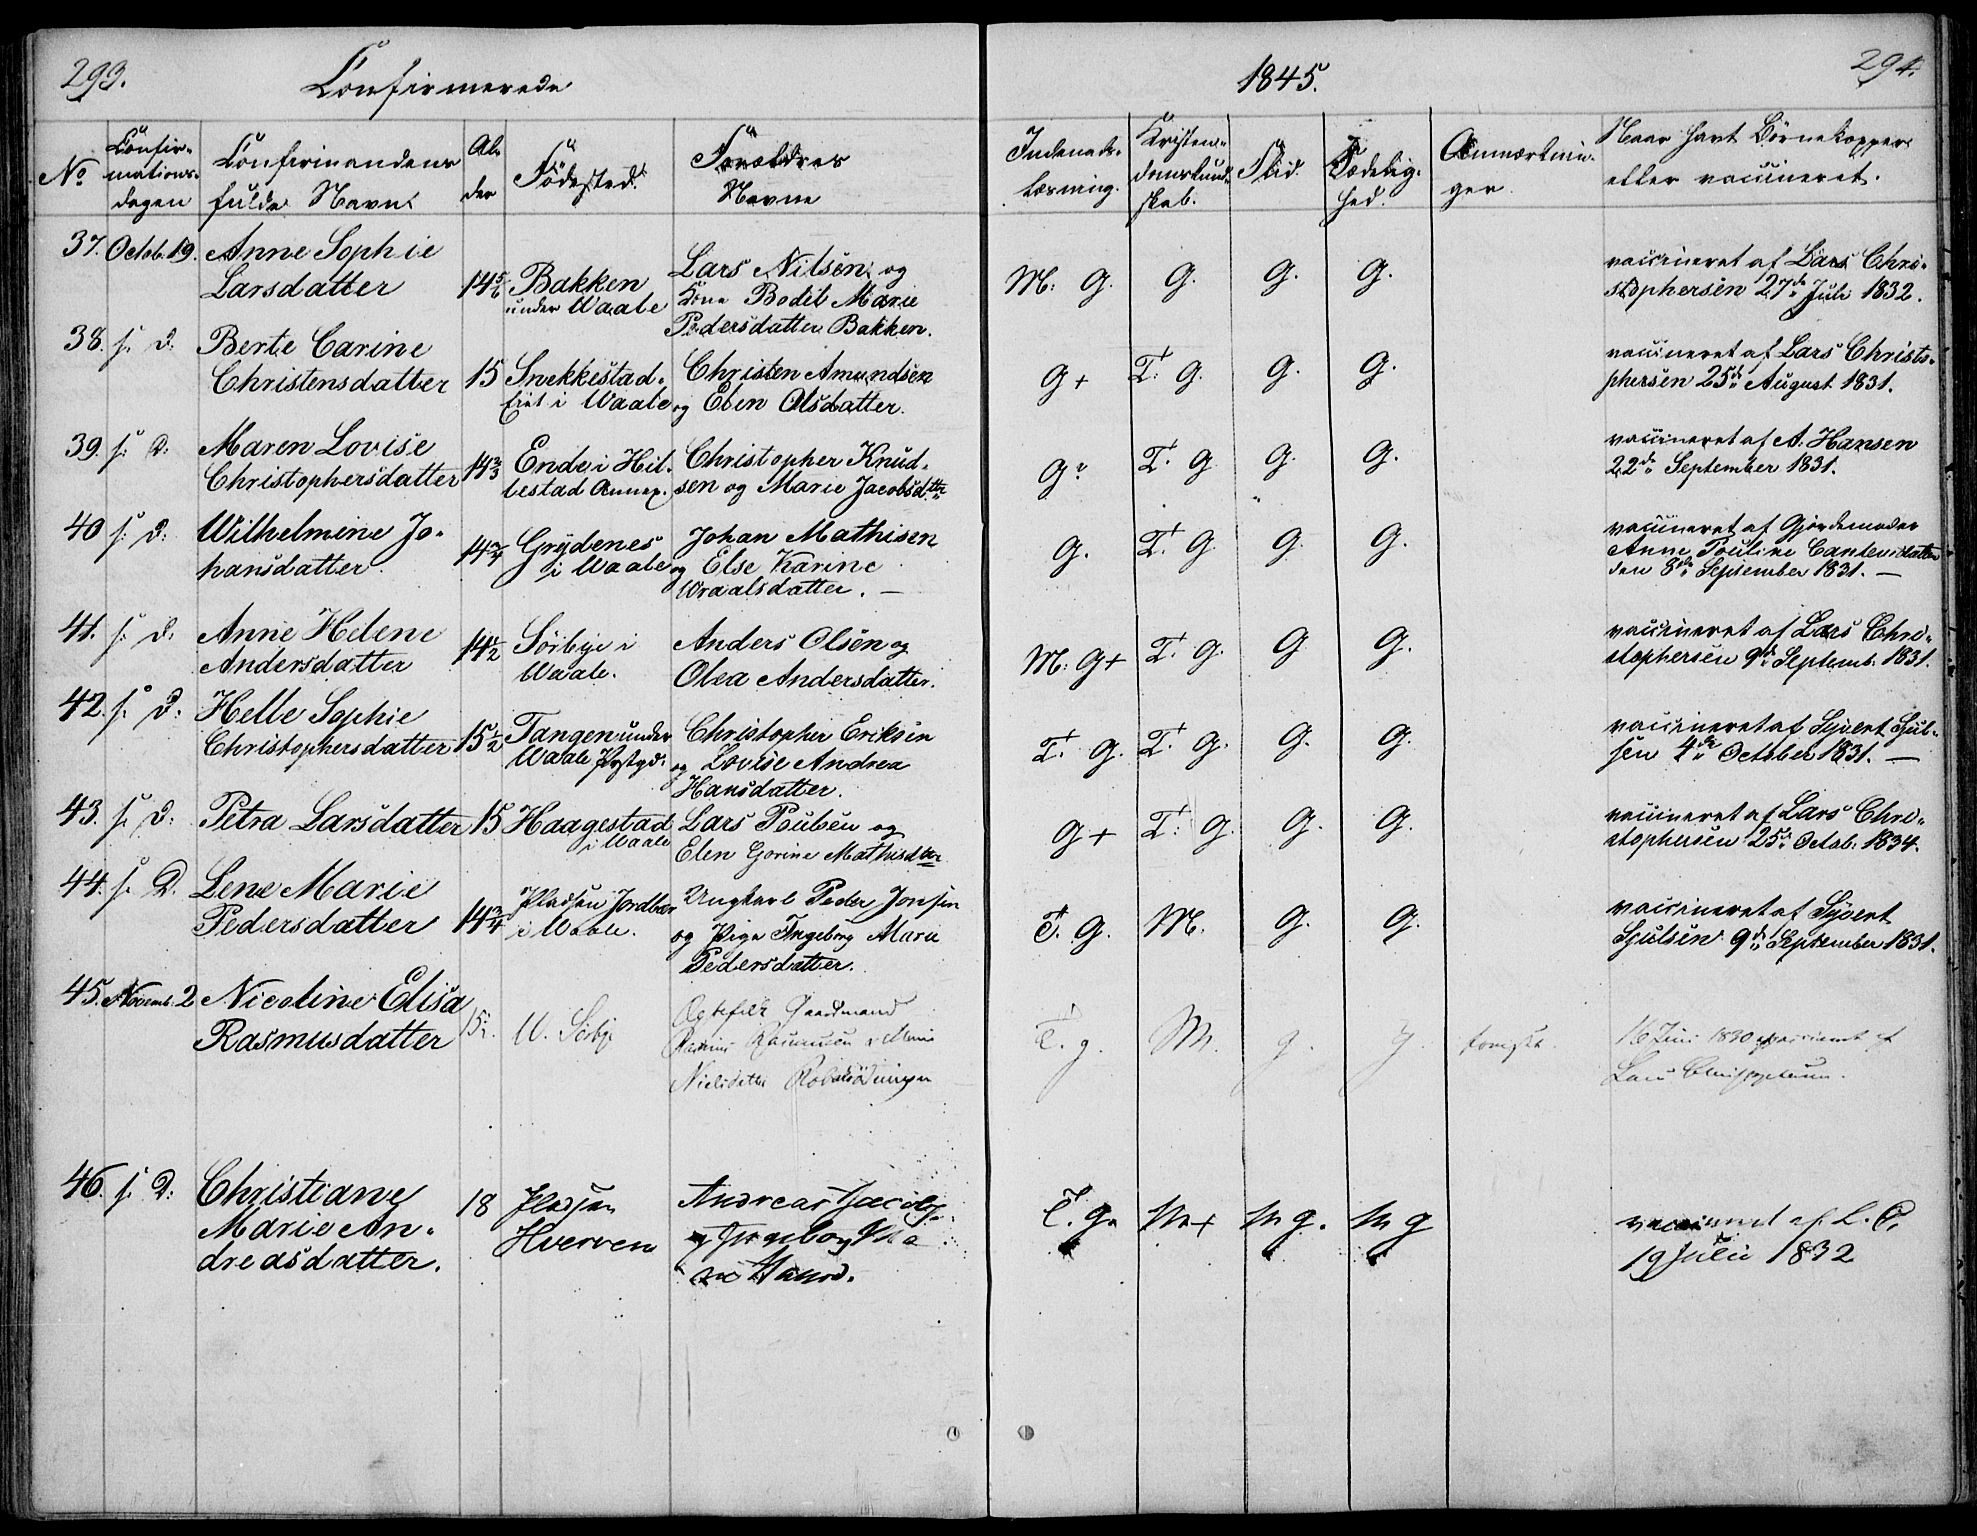 293.
Confirmerede
1845.
294.
No
Confir-
mations-
dagen
Confirmandens
fulde Navn.
Al-
der
Födested.
Forældres
Navne
Indenads-
læsning.
Kristen-
domskund-
skab.
Flid.
Sædelig-
hed.
Anmærknin-
ger.
Naar havt Børnekopper
eller vaccineret.
37. Octob. 19. Anne Sophie
Larsdatter
14 5/6
Bakken
under Waale
Lars Nilsen og
Kone Bodil Marie
Pedersdatter Bakken.
M: G. G. G. G.
vaccineret af Lars Chri-
stophersen 27de Juli 1832.
38. s. D. Berte Carine
Christensdatter
15
Snekkestad-
eiet i Waale
Christen Amundsen
og Elen Olsdatter.
G+ T. G. G. G.
vaccineret af Lars Christo-
phersen 25de August 1831.
39. s. D. Maren Lovise
Christophersdatter
14 2/3
Ende i Hil-
lestad Annex.
Christopher Knud-
sen og Marie Jacobsdtter
G. T. G G. G.
vaccineret af A. Hansen
22de September 1831.
40 s. D. Wilhelmine Jo-
hansdatter
14 3/4
Grydenes
i Waale
Johan Mathisen
og Else Karine
Wraalsdatter. —
G. T. G G. G.
vaccineret af Gjordemoder
Anne
den 8de September 1831. —
41. s. D. Anne Helene
Andersdatter
14 1/2
Sörbye i
Waale.
Anders Olsen og
Olea Andersdatter.
M: G+ T. G. G G.
vaccineret af Lars Chri-
stophersen 9de Septemb. 1831.
42. s. D. Helle Sophie
Christophersdatter
15 1/2
Tangen under
Waale Præstgd.
Christopher Eriksen
og Lovise Andrea
Hansdatter.
T. G. T. G. G. G.
vaccineret af Syvert Gjul-
sen 4de October 1831. —
43. s. D. Petra Larsdatter
15
Haagestad
i Waale
Lars Poulsen og
Elen Gorine Mathisdtter
G+ T. G. G. G.
vaccineret af Lars Chri-
stophersen 25de Octob. 1834.
44. s. D. Lene Marie
Pedersdatter
14 3/4
Pladsen Jordbær
i Waale.
Ungkarl Peder Jonsen
og Pige Ingeborg Marie
Pedersdatter.
T. G. M. G. G.
vaccineret af Syvert
Gjulsen 9de September 1831.
45. Novemb. 2 Nicoline Elisa
Rasmusdatter
15
W. Sörby
Ægtefolk Gaardmand
Rasmus Rasmusen
Nielsdatter
T. g. M. g. g
16 Juni 1830 vaccineret af
Lars
46. s. D. Christiane
Marie An-
dreasdatter.
18
Pladsen
Hverven
Andreas Jacobs.
og Ingeborg
T. g. M+ Mg. Mg
vaccineret af L. C.
19 Julii 1832